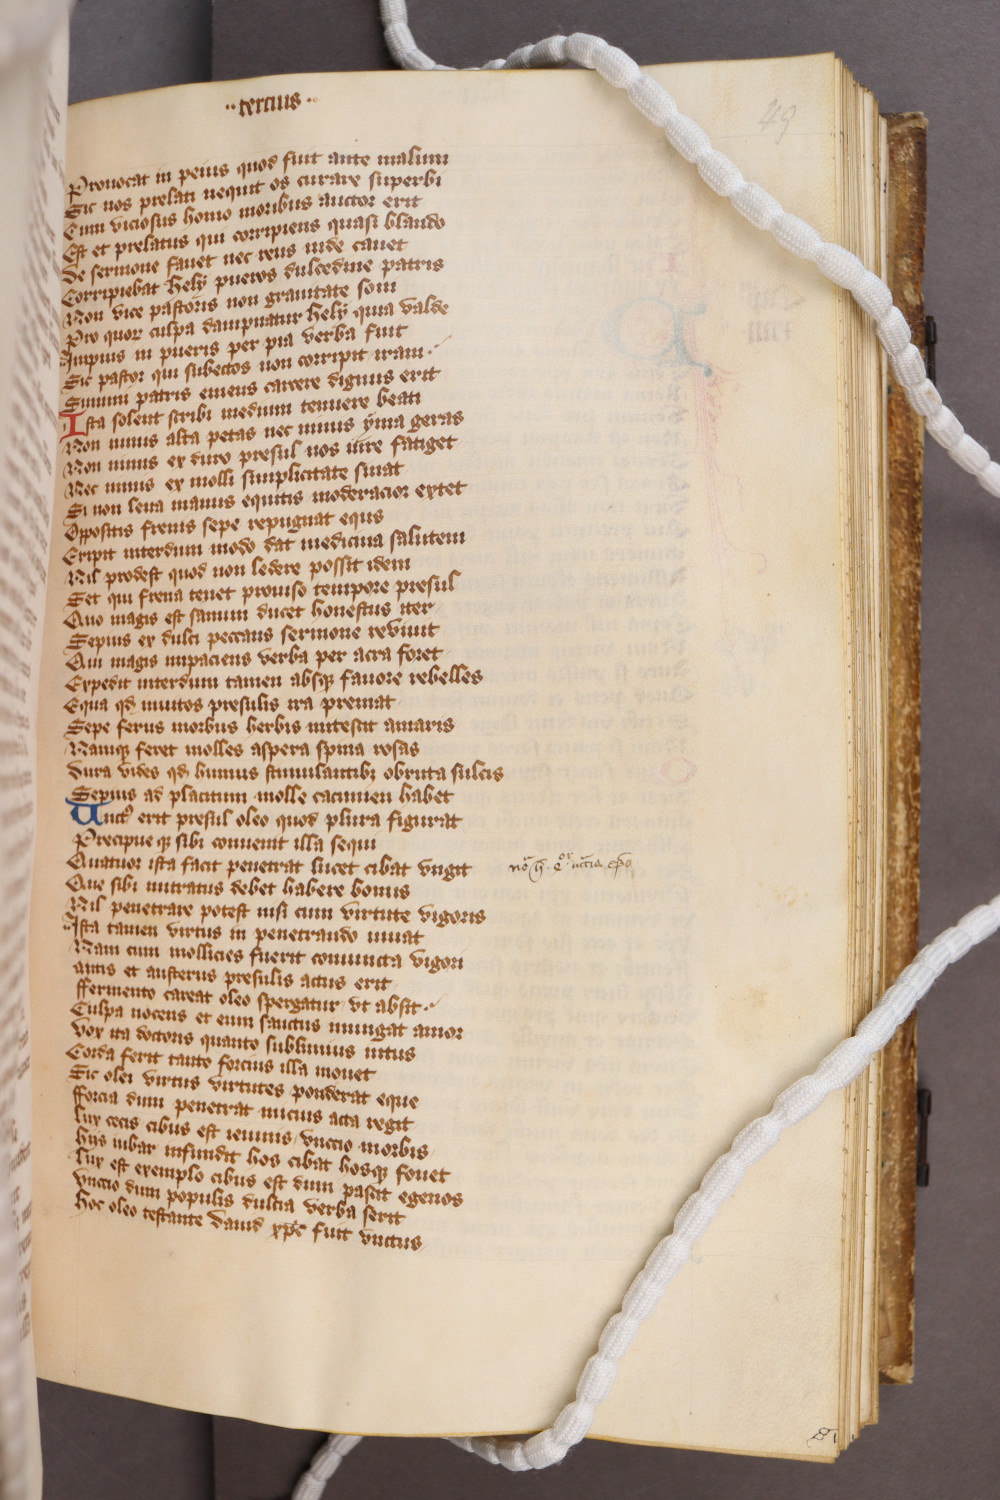 ·· tercius ··
49
Prouocat in peius quod fuit ante malum
Sic nos prelati nequit os curare superbi
Cum viciosus homo moribus auctor erit
Est et prelatus qui corripiens quasi blando
De sermone fauet nec reus inde cauet
Corripiebat hely pueros dulcedine patris
Non vice pastoris non grauitate soni
Pro quor culpa dampnatur hely quia valde
Impius in pueris per pia verba fuit
Sic pastor qui subiectos non corripit iram
Summi patris emens carcere dignus erit
Ista solent scribi medium tenuere beati
Non nimis alta petas nec nimis yma geras
Non nimis ex duro presul uos iure fatiget
Nec nimis ex molli simplicitate sinat
Si non leua manus equitis moderacior extet
Oppositis frenis sepe repugnat equs
Eripit interdum modo dat medicina salutem
Nil prodest quod non ledere possit idem
Set qui frena tenet prouiso tempore presul
Quo magis est sanum ducet honestus iter
Sepius ex dulci peccans sermone reuiuit
Qui magis impaciens verba per acra foret
Expedit interdum tamen absq fauore rebelles
Equa qd inuitos presulis ira premat
Sepe ferus morbus herbis mitescit amaris
Namq feret molles aspera spina rosas
Dura vides qd humus stimulantibz obruta sulcis
Sepius ad placitum molle cacumen habet
Unct erit presul oleo quod plura figurat
Precipue q sibi conuenit illa sequi
Quatuor ista facit penetrat lucet cibat vngit
Que sibi mitratus debet habere bonus
Nil penetrare potest nisi cum virtute vigoris
Ista tamen virtus in penetrando iuuat
Nam cum mollicies fuerit coniuncta vigori
Mitis et austerus presulis actus erit
ffermento careat oleo spergatur vt absit
Culpa nocens et eum sanctus inungat amor
Vox ita doctoris quanto sublimius intus
Corda ferit tanto forcius illa mouet
Sic olei virtus virtutes ponderat eque
fforcia dum penetrat micius acta regit
Lux cecis cibus est ieiunis vnccio morbis
Hiis iubar infundit hos cibat hosq fouet
Lux est exemplo cibus est dum pascit egenos
Vnccio dum populis dulcia verba serit
Hoc oleo testante dauid xpc fuit vnctus